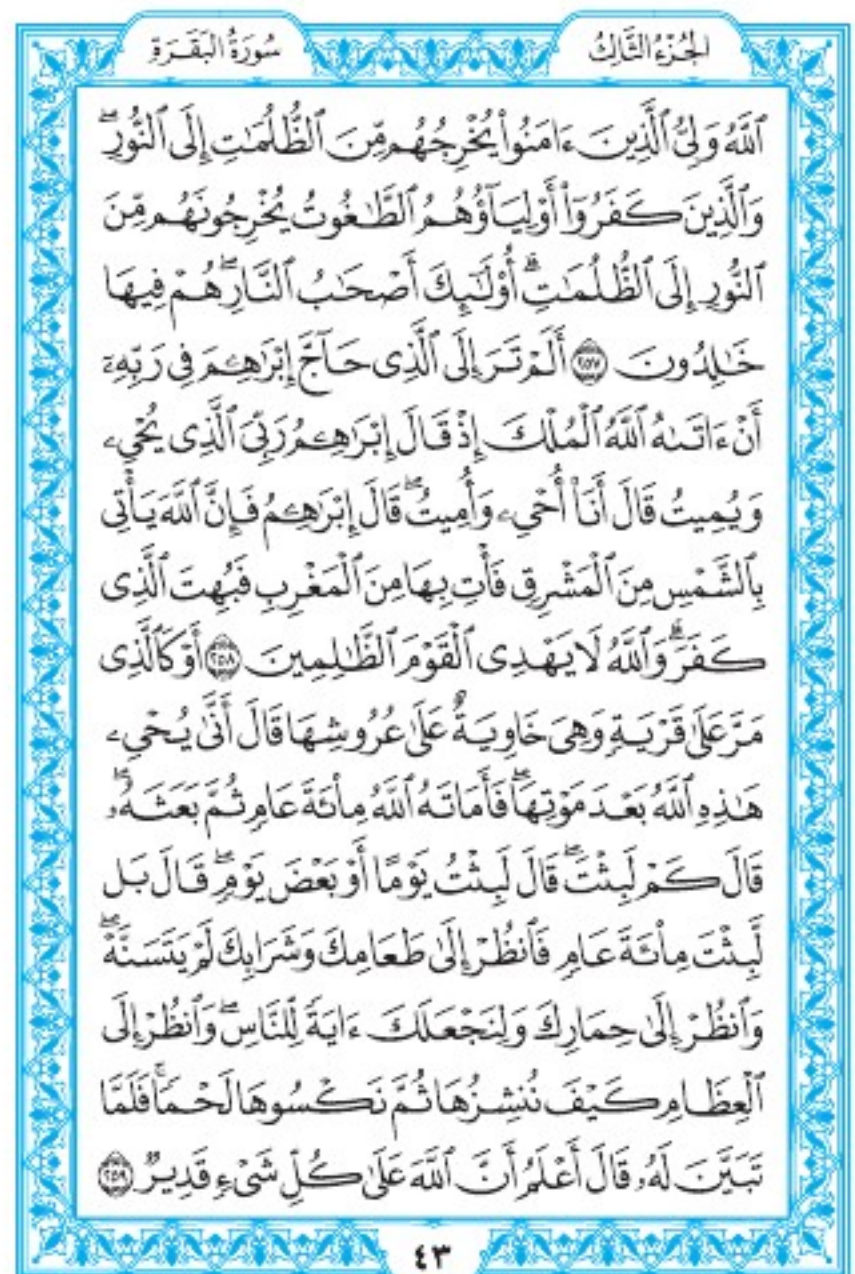 الجُزْءُ الثَّالِثُ
سُورَةُ البَقَرَةِ
ٱللَّهُ وَلِيُّ ٱلَّذِينَ ءَامَنُوا۟ يُخْرِجُهُم مِّنَ ٱلظُّلُمَٰتِ إِلَى ٱلنُّورِۖ
وَٱلَّذِينَ كَفَرُوٓا۟ أَوْلِيَآؤُهُمُ ٱلطَّٰغُوتُ يُخْرِجُونَهُم مِّنَ
ٱلنُّورِ إِلَى ٱلظُّلُمَٰتِۗ أُو۟لَٰٓئِكَ أَصْحَٰبُ ٱلنَّارِۖ هُمْ فِيهَا
خَٰلِدُونَ ٢٥٧ أَلَمْ تَرَ إِلَى ٱلَّذِى حَآجَّ إِبْرَٰهِۦمَ فِى رَبِّهِۦٓ
أَنْ ءَاتَىٰهُ ٱللَّهُ ٱلْمُلْكَ إِذْ قَالَ إِبْرَٰهِۦمُ رَبِّىَ ٱلَّذِى يُحْىِۦ
وَيُمِيتُ قَالَ أَنَا۠ أُحْىِۦ وَأُمِيتُۖ قَالَ إِبْرَٰهِۦمُ فَإِنَّ ٱللَّهَ يَأْتِى
بِٱلشَّمْسِ مِنَ ٱلْمَشْرِقِ فَأْتِ بِهَا مِنَ ٱلْمَغْرِبِ فَبُهِتَ ٱلَّذِى
كَفَرَۗ وَٱللَّهُ لَا يَهْدِى ٱلْقَوْمَ ٱلظَّٰلِمِينَ ٢٥٨ أَوْ كَٱلَّذِى
مَرَّ عَلَىٰ قَرْيَةٍ وَهِىَ خَاوِيَةٌ عَلَىٰ عُرُوشِهَا قَالَ أَنَّىٰ يُحْىِۦ
هَٰذِهِ ٱللَّهُ بَعْدَ مَوْتِهَاۖ فَأَمَاتَهُ ٱللَّهُ مِا۟ئَةَ عَامٍ ثُمَّ بَعَثَهُۥۖ
قَالَ كَمْ لَبِثْتَۖ قَالَ لَبِثْتُ يَوْمًا أَوْ بَعْضَ يَوْمٍۖ قَالَ بَل
لَّبِثْتَ مِا۟ئَةَ عَامٍ فَٱنظُرْ إِلَىٰ طَعَامِكَ وَشَرَابِكَ لَمْ يَتَسَنَّهْۖ
وَٱنظُرْ إِلَىٰ حِمَارِكَ وَلِنَجْعَلَكَ ءَايَةً لِّلنَّاسِۖ وَٱنظُرْ إِلَى
ٱلْعِظَامِ كَيْفَ نُنشِزُهَا ثُمَّ نَكْسُوهَا لَحْمًاۚ فَلَمَّا
تَبَيَّنَ لَهُۥ قَالَ أَعْلَمُ أَنَّ ٱللَّهَ عَلَىٰ كُلِّ شَىْءٍ قَدِيرٌ ٢٥٩
٤٣